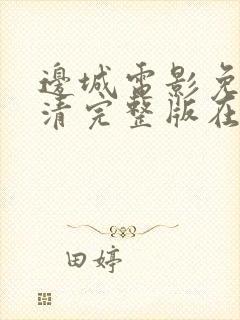 邊城電影免
清完整版在
田婷